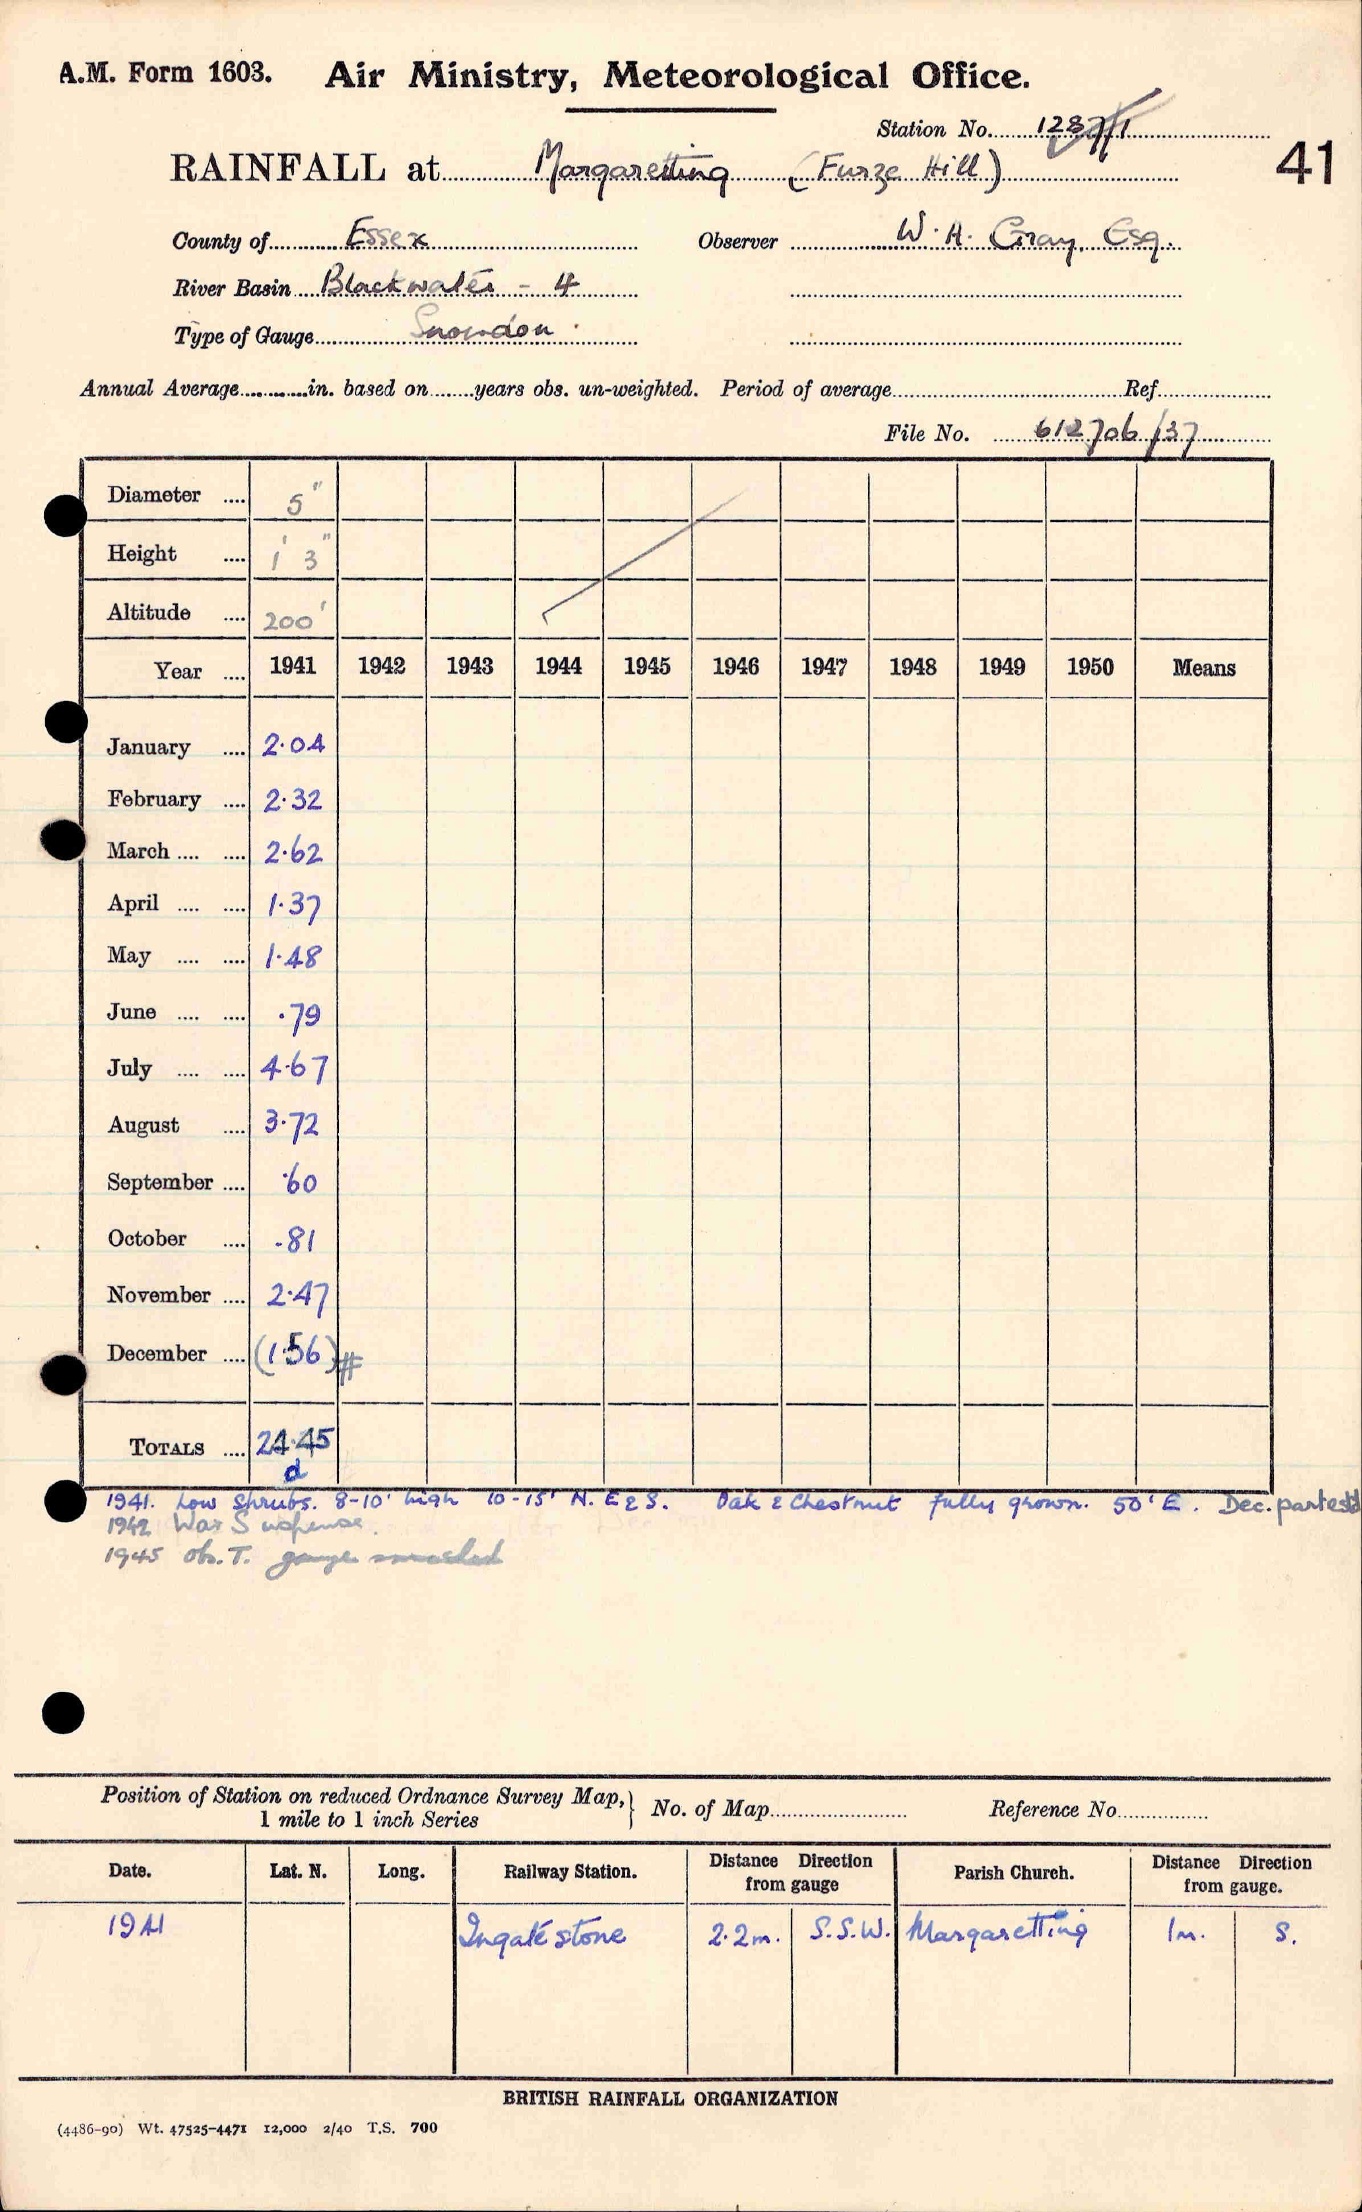 A.M. Form 1603. Air Ministry, Meteorological Office.
Station No. 1287/1
RAINFALL at Margaretting (Furze Hill)
41
County of Essex Observer W. H. Gray, Esq.
River Basin Blackwater - 4
Type of Gauge Snowdon
Annual Average in. based on years obs. un-weighted. Period of average Ref
File No. 612706/37
Diameter 5"
Height 1' 3"
Altitude 200'
Year 1941 1942 1943 1944 1945 1946 1947 1948 1949 1950 Means
January 2.04
February 2.32
March 2.62
April 1.37
May 1.48
June .79
July 4.67
August 3.72
September .60
October .81
November 2.47
December (1.56)#
TOTALS 24.45
d
1941. Low Shrubs. 8-10' high 10-15' N. E & S. Oak & Chestnut fully grown. 50' E. Dec. part estd
1942 War Suspense.
1945 obs. T. gauge smashed
Position of Station on reduced Ordnance Survey Map, 1 mile to 1 inch Series No. of Map Reference No.
Date. Lat. N. Long. Railway Station. Distance Direction from gauge Parish Church. Distance Direction from gauge.
1941 Ingatestone 2.2m. S.S.W. Margaretting 1m. S.
BRITISH RAINFALL ORGANIZATION
(4486-90) Wt. 47525-4471 12,000 2/40 T.S. 700